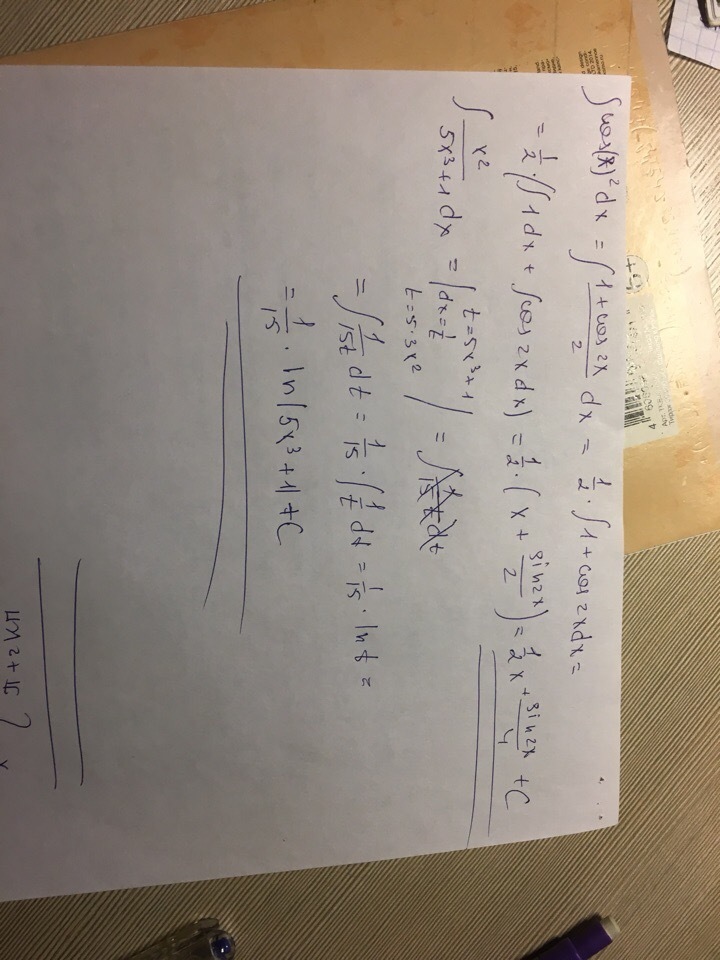 ∫cos(x)²dx = ∫ (1+cos2x)/2 dx = 1/2 · ∫1+cos2xdx =
= 1/2 · (∫1dx + ∫cos2xdx) = 1/2 · (x + sin2x/2) = 1/2 x + sin2x/4 + C
∫ x²/(5x³+1) dx = | t=5x³+1
dx=1/t
t=5·3x² | = ∫ dt
= ∫ 1/(15t) dt = 1/15 · ∫ 1/t dt = 1/15 · ln t =
= 1/15 · ln|5x³+1|+C
π+2кπ